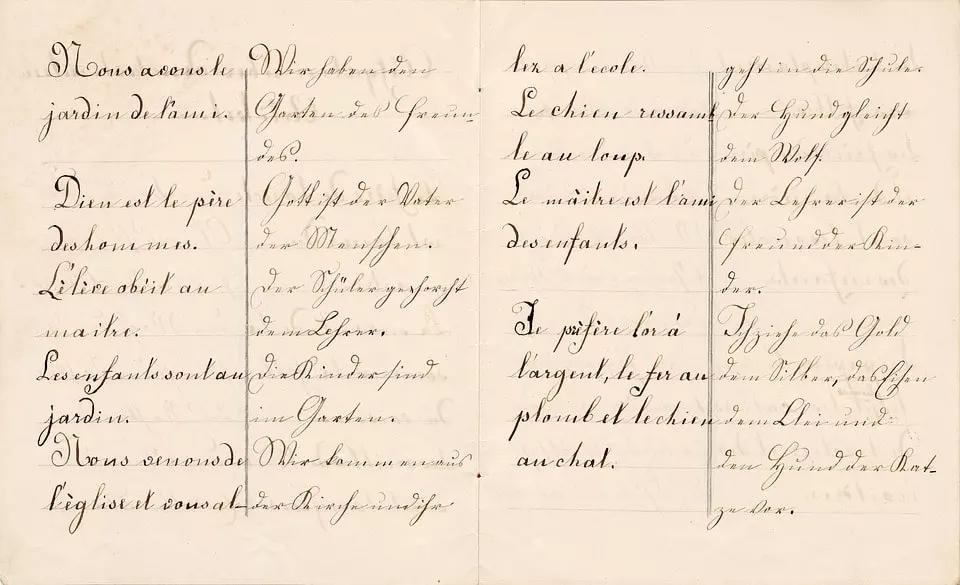 Nous avons le
jardin de l'ami.
Dieu est le père
des hommes.
L'élève obéit au
maitre.
Les enfants sont au
jardin.
Nous venons de
l'église et vous al-
Wir haben den
Garten des Freun-
des.
Gott ist der Vater
der Menschen.
Der Schüler gehorcht
dem Lehrer.
Die Kinder sind
im Garten.
Wir kommen aus
der Kirche und ihr
lez a l'ecole.
Le chien ressemb
le au loup.
Le maître est l'ami
des enfants.
Je préfère l'or à
l'argent, le fer au
plomb et le chien
au chat.
geht in die Schule.
Der Hund gleicht
dem Wolf.
Der Lehrer ist der
Freund der Kin-
der.
Ich ziehe das Gold
dem Silber, das Eisen
dem Blei und
den Hund der Kat-
ze vor.